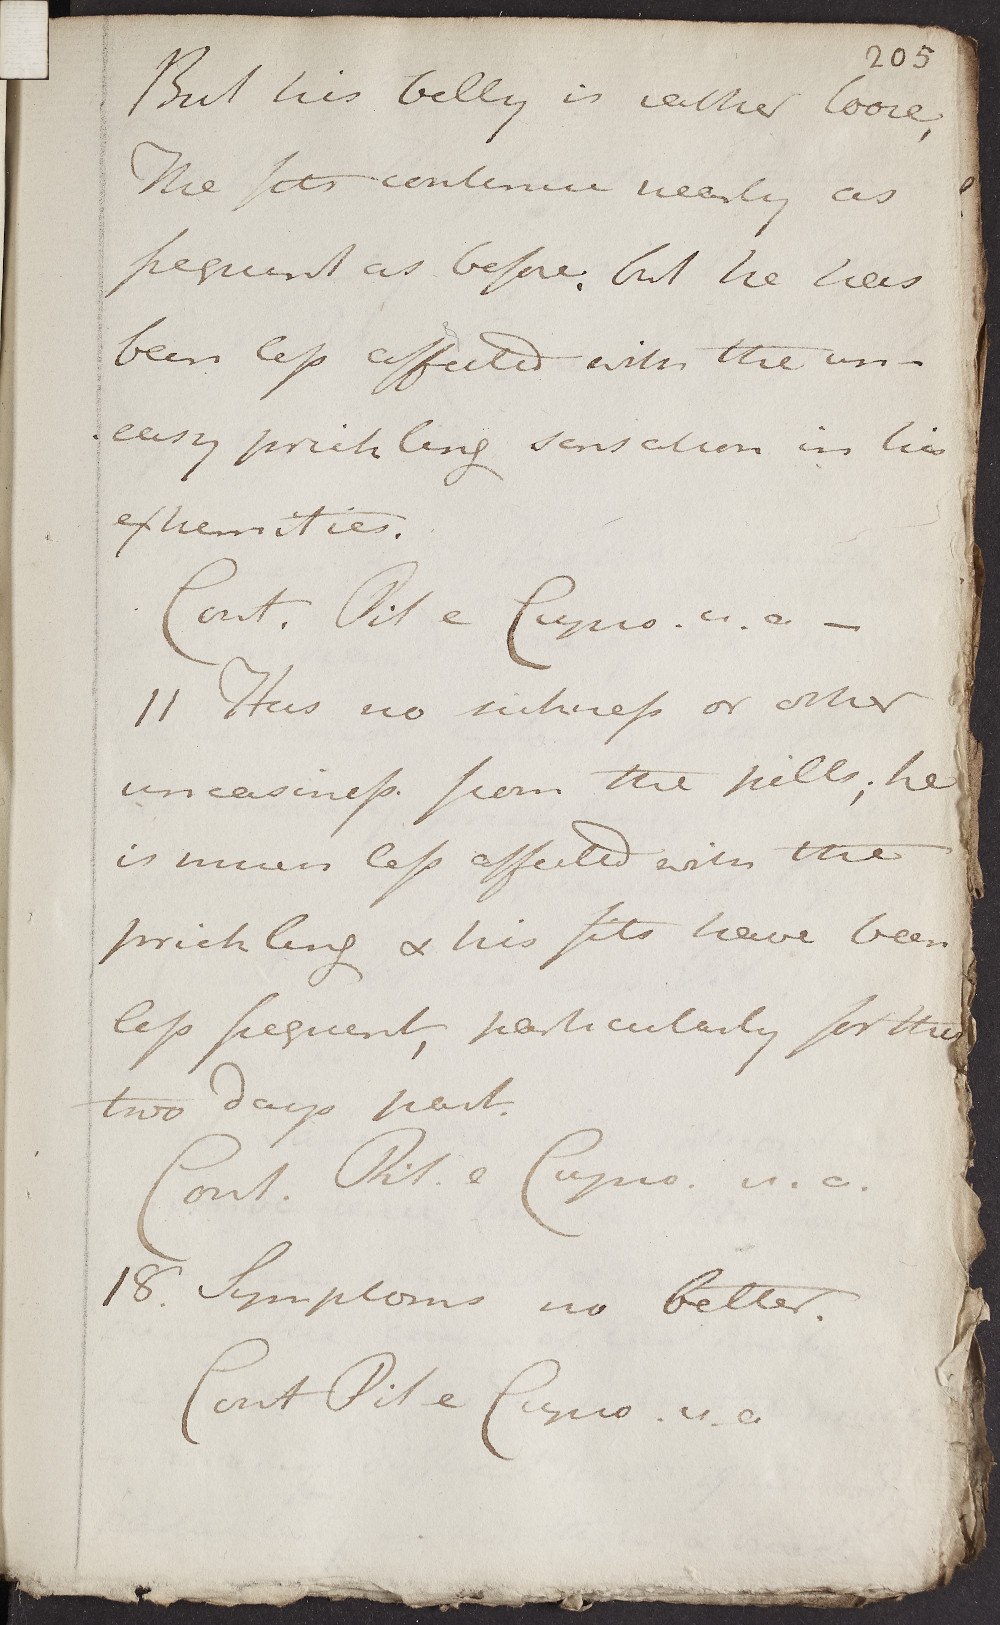 205
But his belly is rather loose,
The fits continue nearly as
frequent as before. but he has
been less affected with the un-
easy prickling sensation in his
extremities.
Cont. Pil e Cupro. u. a —
11 Has no sickness or other
uneasiness from the pills; he
is much less affected with the
prickling & his fits have been
less frequent, particularly for the
two days past.
Cont. Pil. e Cupro. u. a.
18. Symptoms no better.
Cont Pil e Cupro. u. a